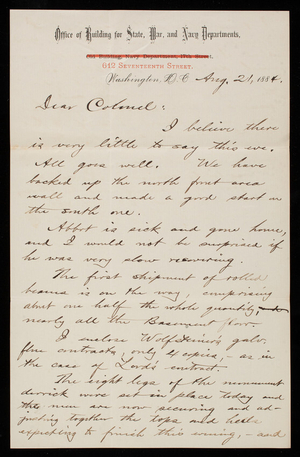 Office of Building for State, War, and Navy Departments.
612 SEVENTEENTH STREET.
Washington, D. C. Aug. 21, 1884.
Dear Colonel:
I believe there
is very little to say this eve.
All goes well. We have
backed up the north front area
wall and made a good start on
the south one.
Abbot is sick and gone home,
and I would not be surprised if
he was very slow recovering.
The first shipment of rolled
beams is on the way, comprising
about one half the whole quantity,
nearly all the Basement floor.
I enclose Wolf Steiner's galv.
flue contracts, only 4 copies, - as in
the case of Lord's contract.
The eight legs of the monument
derrick were set in place today and
the men are now securing and ad-
justing together the tops and heels
expecting to finish this evening, - and